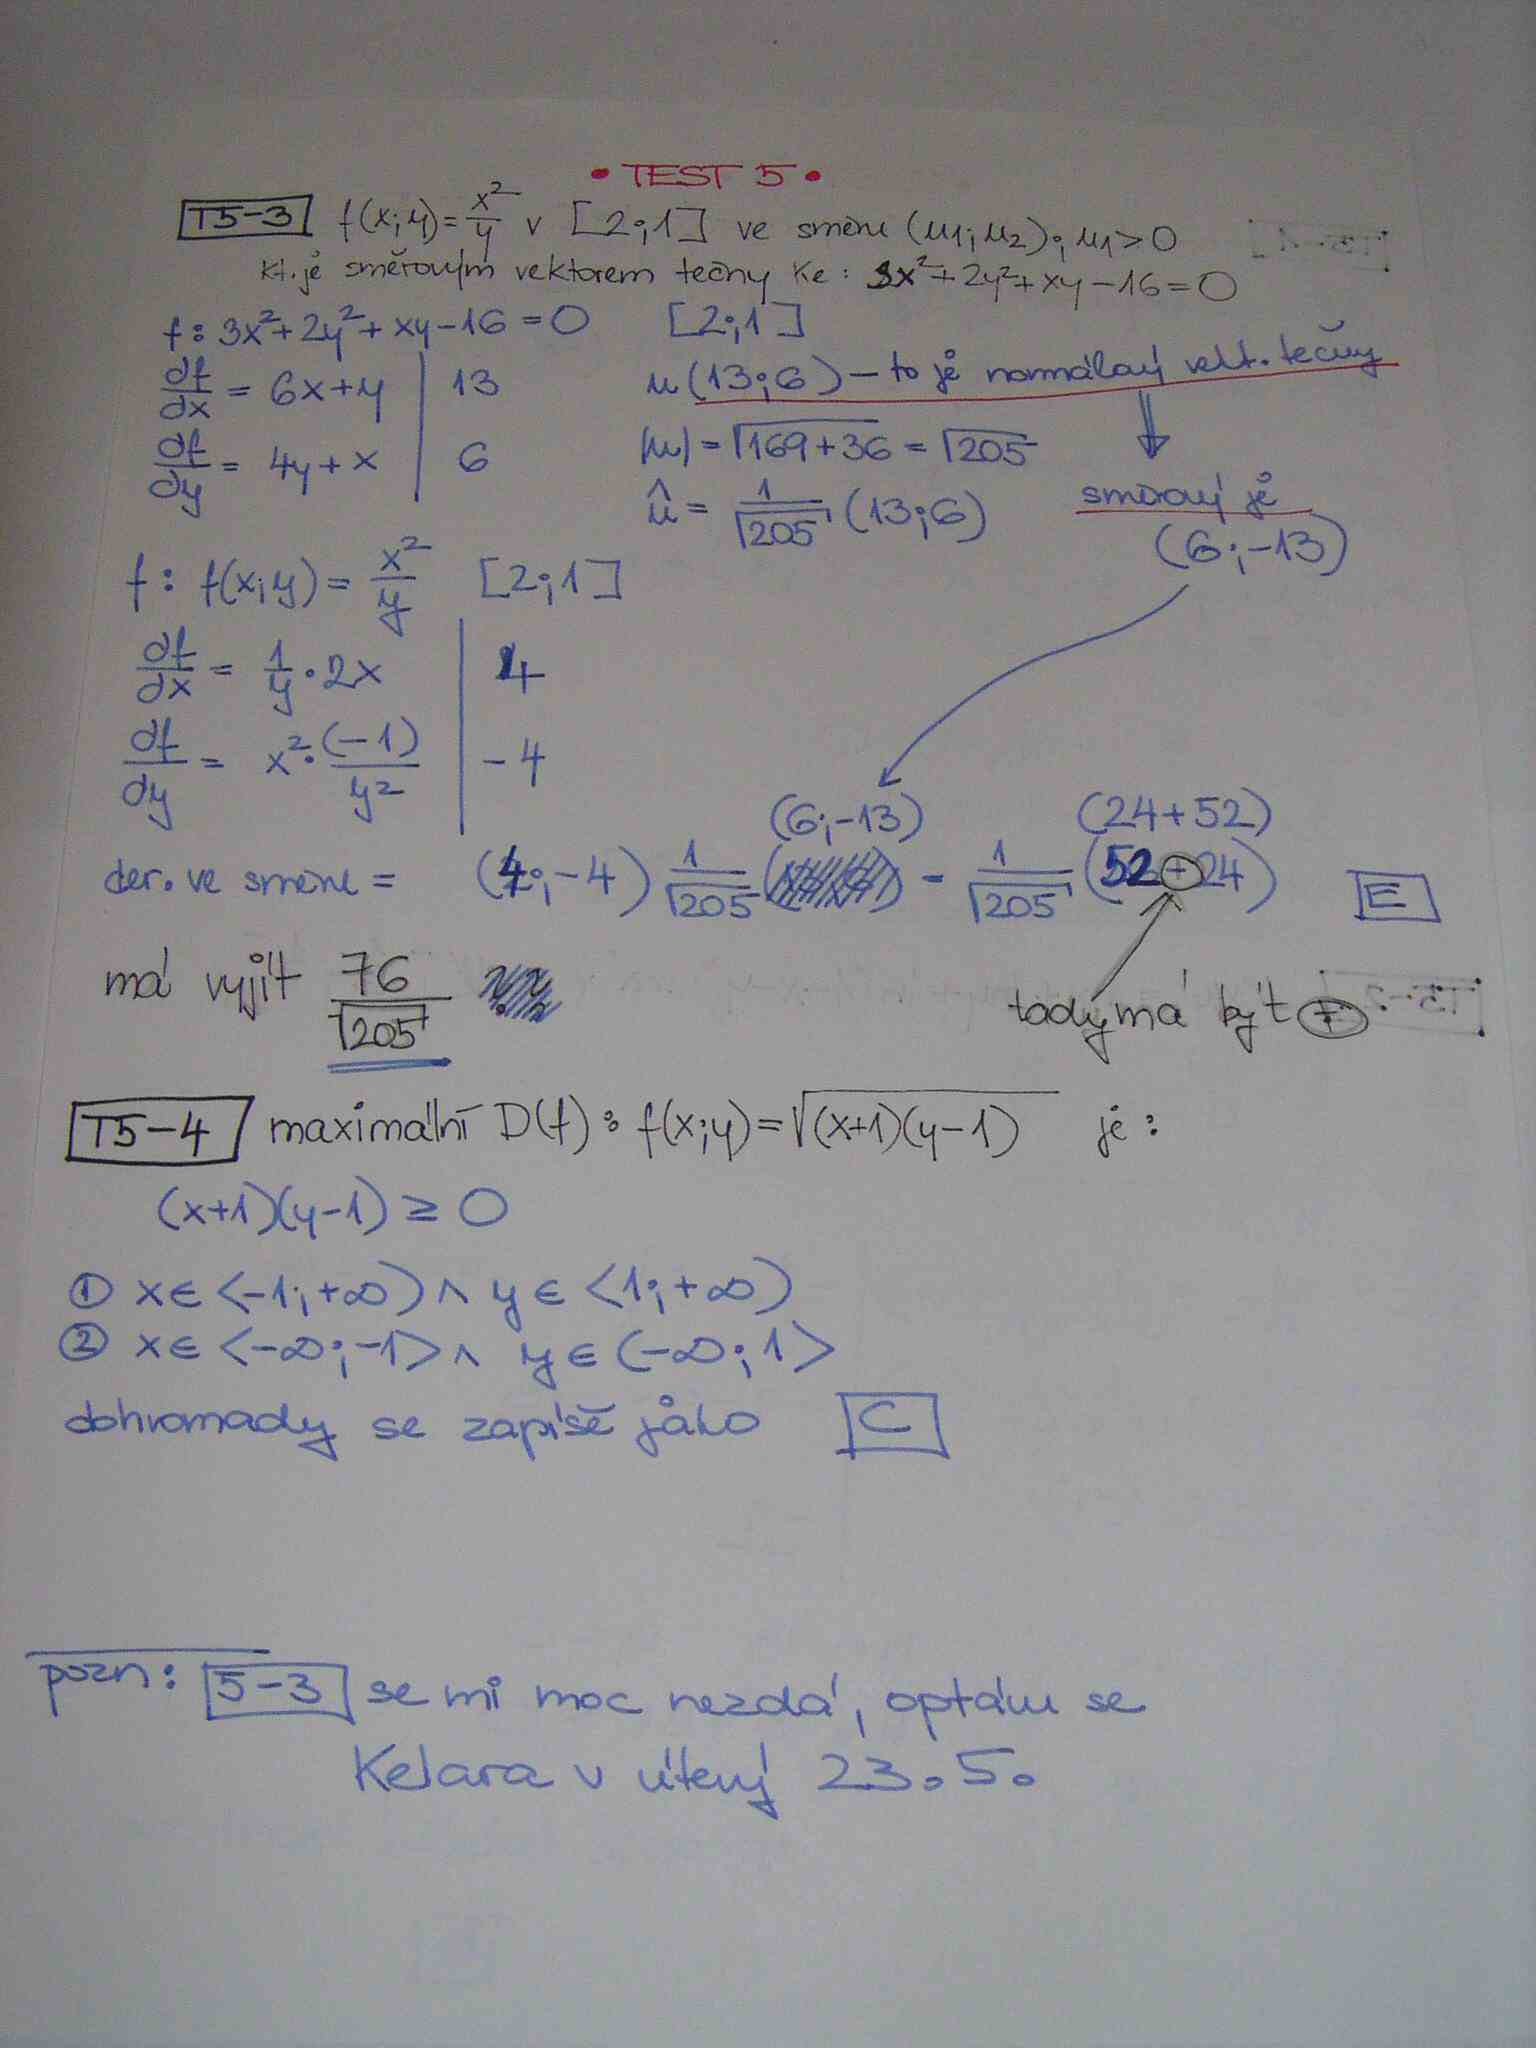 • TEST 5 •
T5-3 f(x;y)=x²/y v [2;1] ve směru (u1;u2); u1>0
kt. je směrovým vektorem tečny ke: 3x²+2y²+xy-16=0
f: 3x²+2y²+xy-16=0 [2;1]
df/dx = 6x+y | 13 u(13;6) - to je normálový vekt. tečny
df/dy = 4y+x | 6 |u| = √169+36 = √205
û = 1/√205 (13;6) směrový je
(6;-13)
f: f(x;y)= x²/y [2;1]
df/dx = 1/y · 2x | 4
df/dy = x² · (-1)/y² | -4
(6;-13) (24+52)
der. ve směru = (4;-4) 1/√205 = 1/√205 (52+24) E
má vyjít 76/√205 tady má být +
T5-4 maximální D(f): f(x;y)=√(x+1)(y-1) je:
(x+1)(y-1) ≥ 0
① x∈<-1;+∞) ∧ y∈<1;+∞)
② x∈<-∞;-1> ∧ y∈(-∞;1>
dohromady se zapíše jako C
pozn: 5-3 se mi moc nezdá, optám se
Kelara v úterý 23.5.